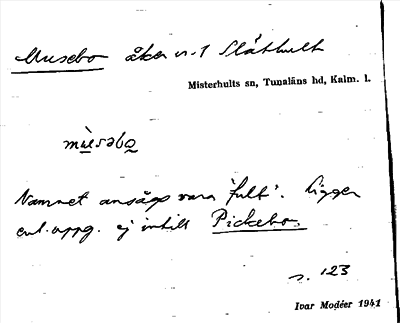 Musebo åker n.1 Släthult
Misterhults sn, Tunaläns hd, Kalm. l.
mùsəbo
Namnet ansågs vara 'fult'. Ligger
enl. uppg. ej intill Pickebo.
s. 123
Ivar Modéer 1941